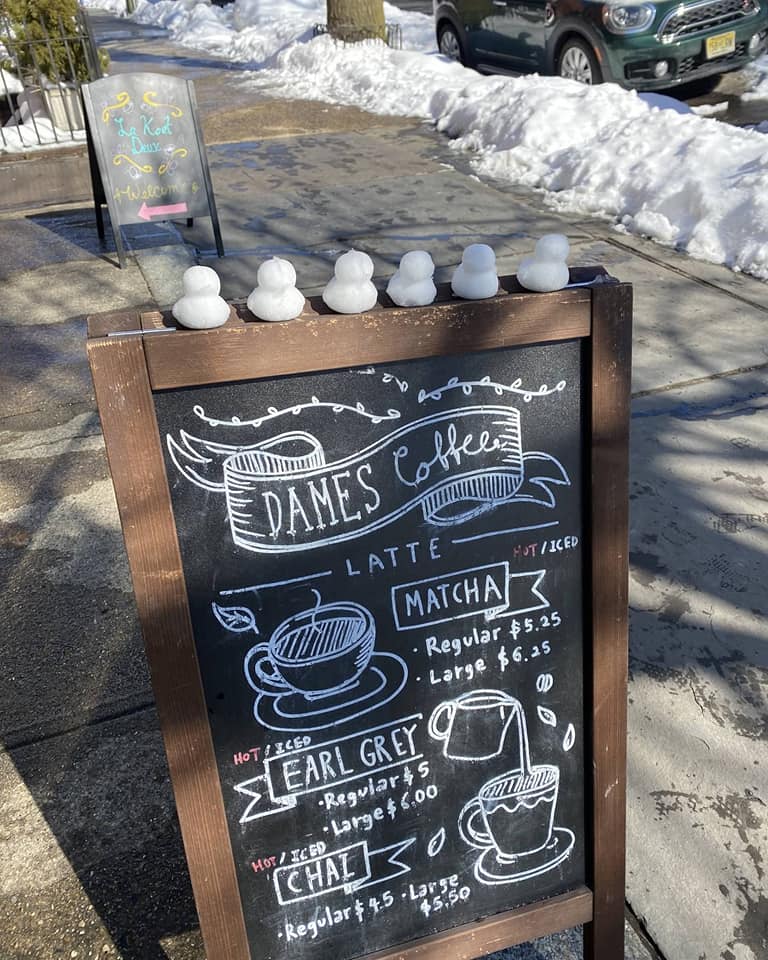 La Kort
Deux
Welcome
DAMES Coffee
LATTE
HOT / ICED
MATCHA
· Regular $5.25
· Large $6.25
HOT / ICED
EARL GREY
· Regular $5
· Large $6.00
HOT / ICED
CHAI
· Regular $4.5 · Large
$5.50